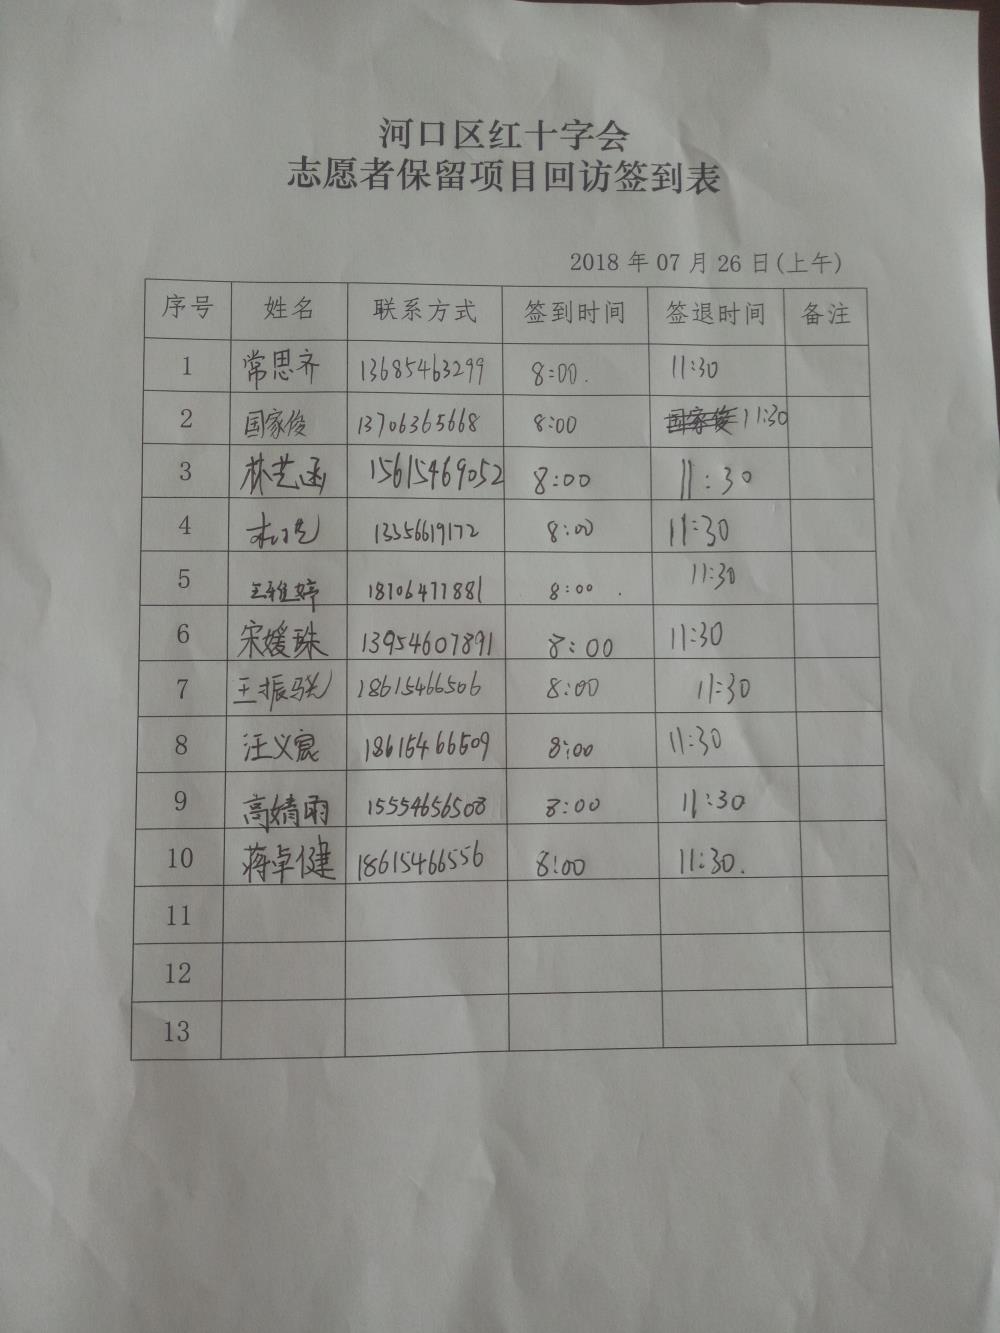 河口区红十字会
志愿者保留项目回访签到表
2018 年 07 月 26 日(上午)
序号 姓名 联系方式 签到时间 签退时间 备注
1 常思齐 13685463299 8:00. 11:30
2 国家俊 13706365668 8:00 国家俊 11:30
3 林艺函 15615469052 8:00 11:30
4 13356619172 8:00 11:30
5 王雅婷 18706477881 8:00 . 11:30
6 宋媛珠 13954607891 8:00 11:30
7 王振骁 18615466506 8:00 11:30
8 汪义宸 18615466509 8:00 11:30
9 高婧雨 15554656508 8:00 11:30
10 蒋卓健 18615466556 8:00 11:30.
11
12
13